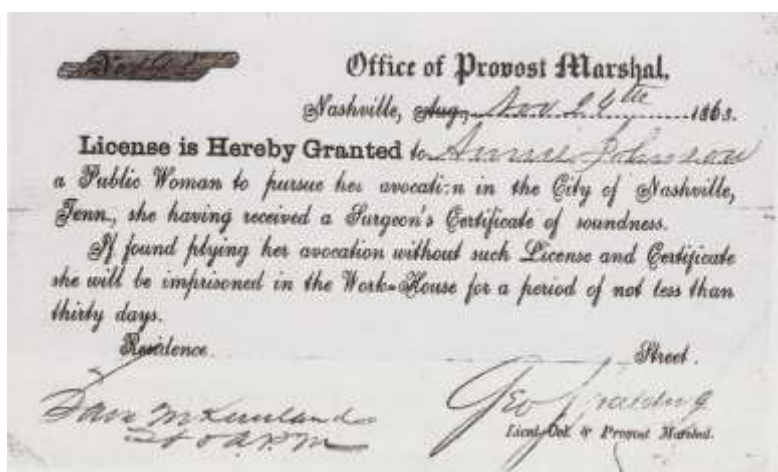 Office of Provost Marshal,
Nashville, Aug, Nov 24th 1863.
License is Hereby Granted to Annie Johnson
a Public Woman to pursue her avocation in the City of Nashville,
Tenn., she having received a Surgeon's Certificate of soundness.
If found plying her avocation without such License and Certificate
she will be imprisoned in the Work-House for a period of not less than
thirty days.
Residence Street.
Geo Spalding
Lieut-Col. & Provost Marshal.